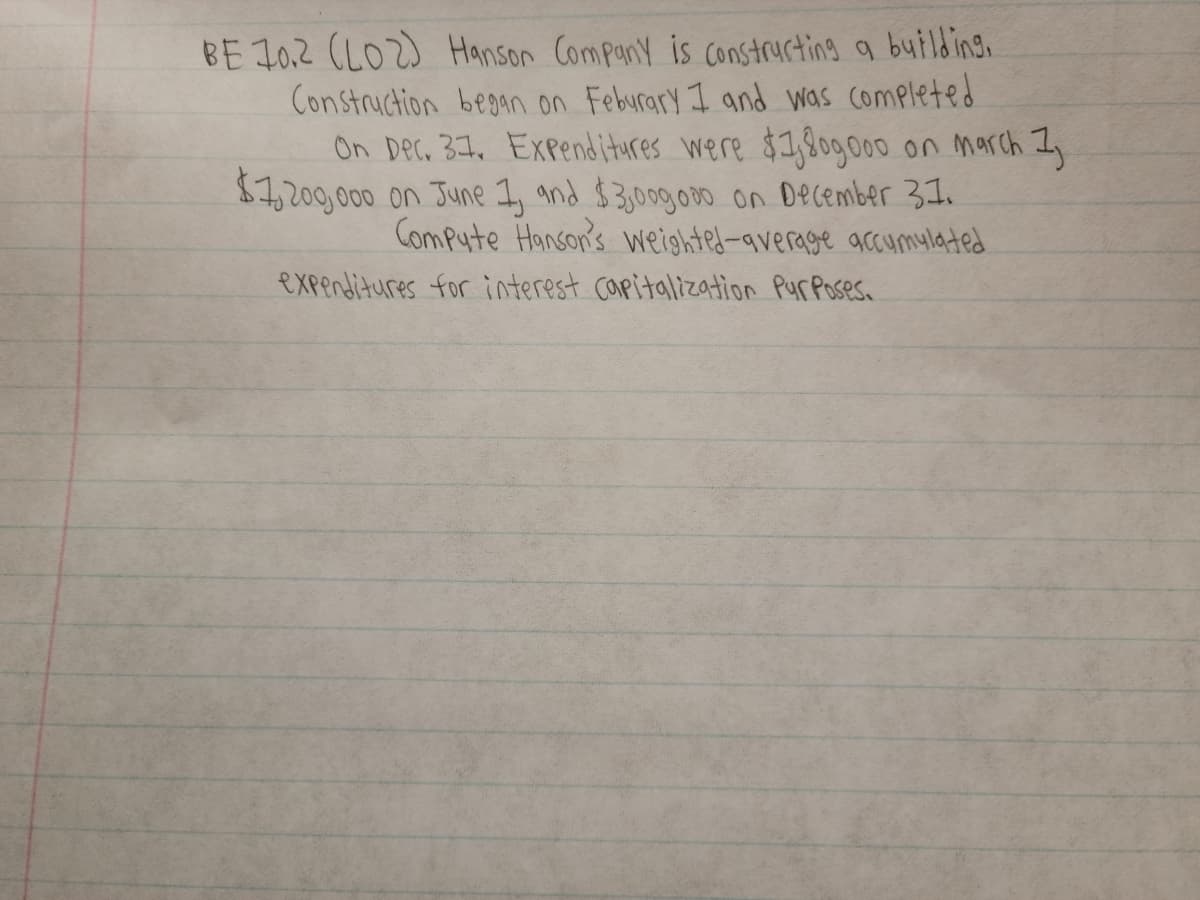 BE 10.2 (LO2) Hanson Company is constructing a building.
Construction began on Feburary 1 and was completed
On Dec. 31. Expenditures were $1,800,000 on march 1,
$1,200,000 on June 1, and $3,000,000 on December 31.
Compute Hanson's weighted-average accumulated
expenditures for interest capitalization purposes.